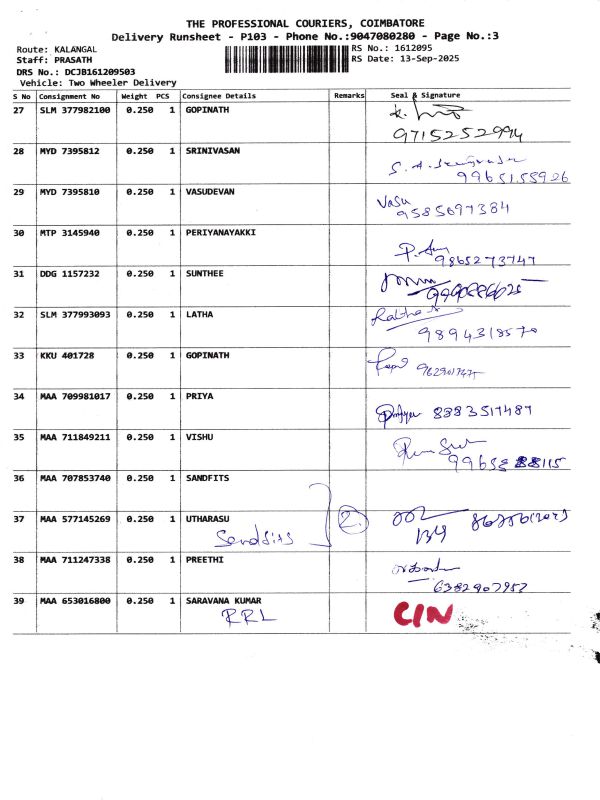 THE PROFESSIONAL COURIERS, COIMBATORE
Delivery Runsheet - P103 - Phone No.:9047080280 - Page No.:3
Route: KALANGAL
Staff: PRASATH
RS No.: 1612095
RS Date: 13-Sep-2025
DRS No.: DCJB161209503
Vehicle: Two Wheeler Delivery
S No Consignment No Weight PCS Consignee Details Remarks Seal & Signature
27 SLM 377982100 0.250 1 GOPINATH
9715252994
28 MYD 7395812 0.250 1 SRINIVASAN
9965155926
29 MYD 7395810 0.250 1 VASUDEVAN Vasu
9585697384
30 MTP 3145940 0.250 1 PERIYANAYAKKI
9865273747
31 DDG 1157232 0.250 1 SUNTHEE
32 SLM 377993093 0.250 1 LATHA
9894318570
33 KKU 401728 0.250 1 GOPINATH
34 MAA 709981017 0.250 1 PRIYA
8883517487
35 MAA 711849211 0.250 1 VISHU
36 MAA 707853740 0.250 1 SANDFITS
37 MAA 577145269 0.250 1 UTHARASU 2.
Sandfits
38 MAA 711247338 0.250 1 PREETHI
6382907957
39 MAA 653016800 0.250 1 SARAVANA KUMAR C/N
RRL